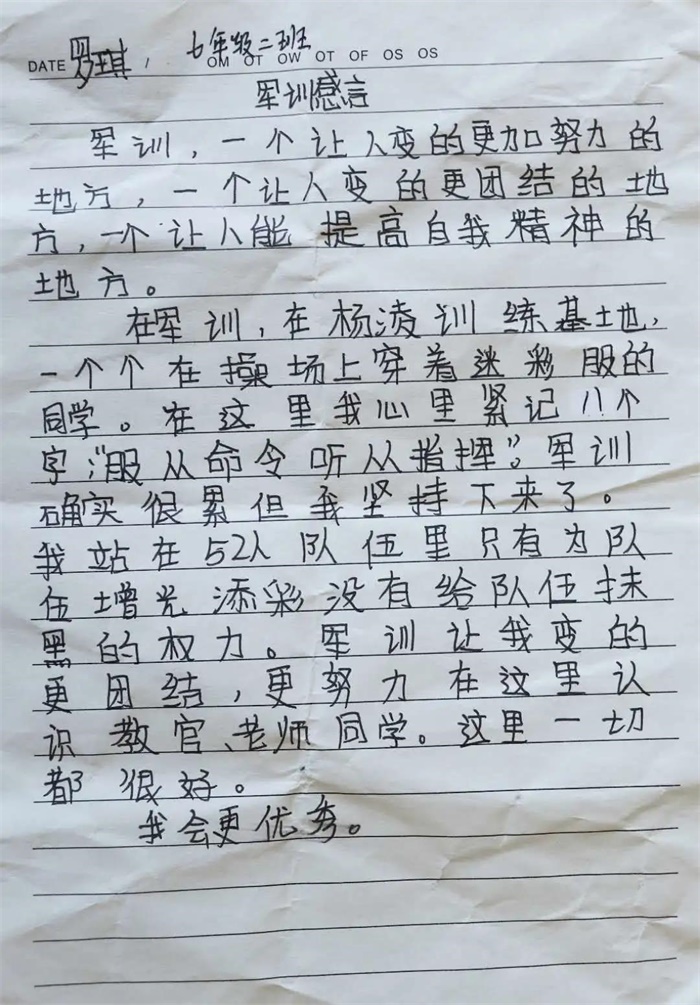 罗琪, 七年级二班
DATE OM OT OW OT OF OS OS
军训感言
军训，一个让人变的更加努力的
地方，一个让人变的更团结的地
方，一个让人能提高自我精神的
地方。
在军训，在杨凌训练基地，
一个个在操场上穿着迷彩服的
同学。在这里我心里紧记八个
字："服从命令听从指挥"。军训
确实很累但我坚持下来了。
我站在52人队伍里只有为队
伍增光添彩没有给队伍抹
黑的权力。军训让我变的
更团结，更努力在这里认
识教官、老师同学。这里一切
都很好。
我会更优秀。